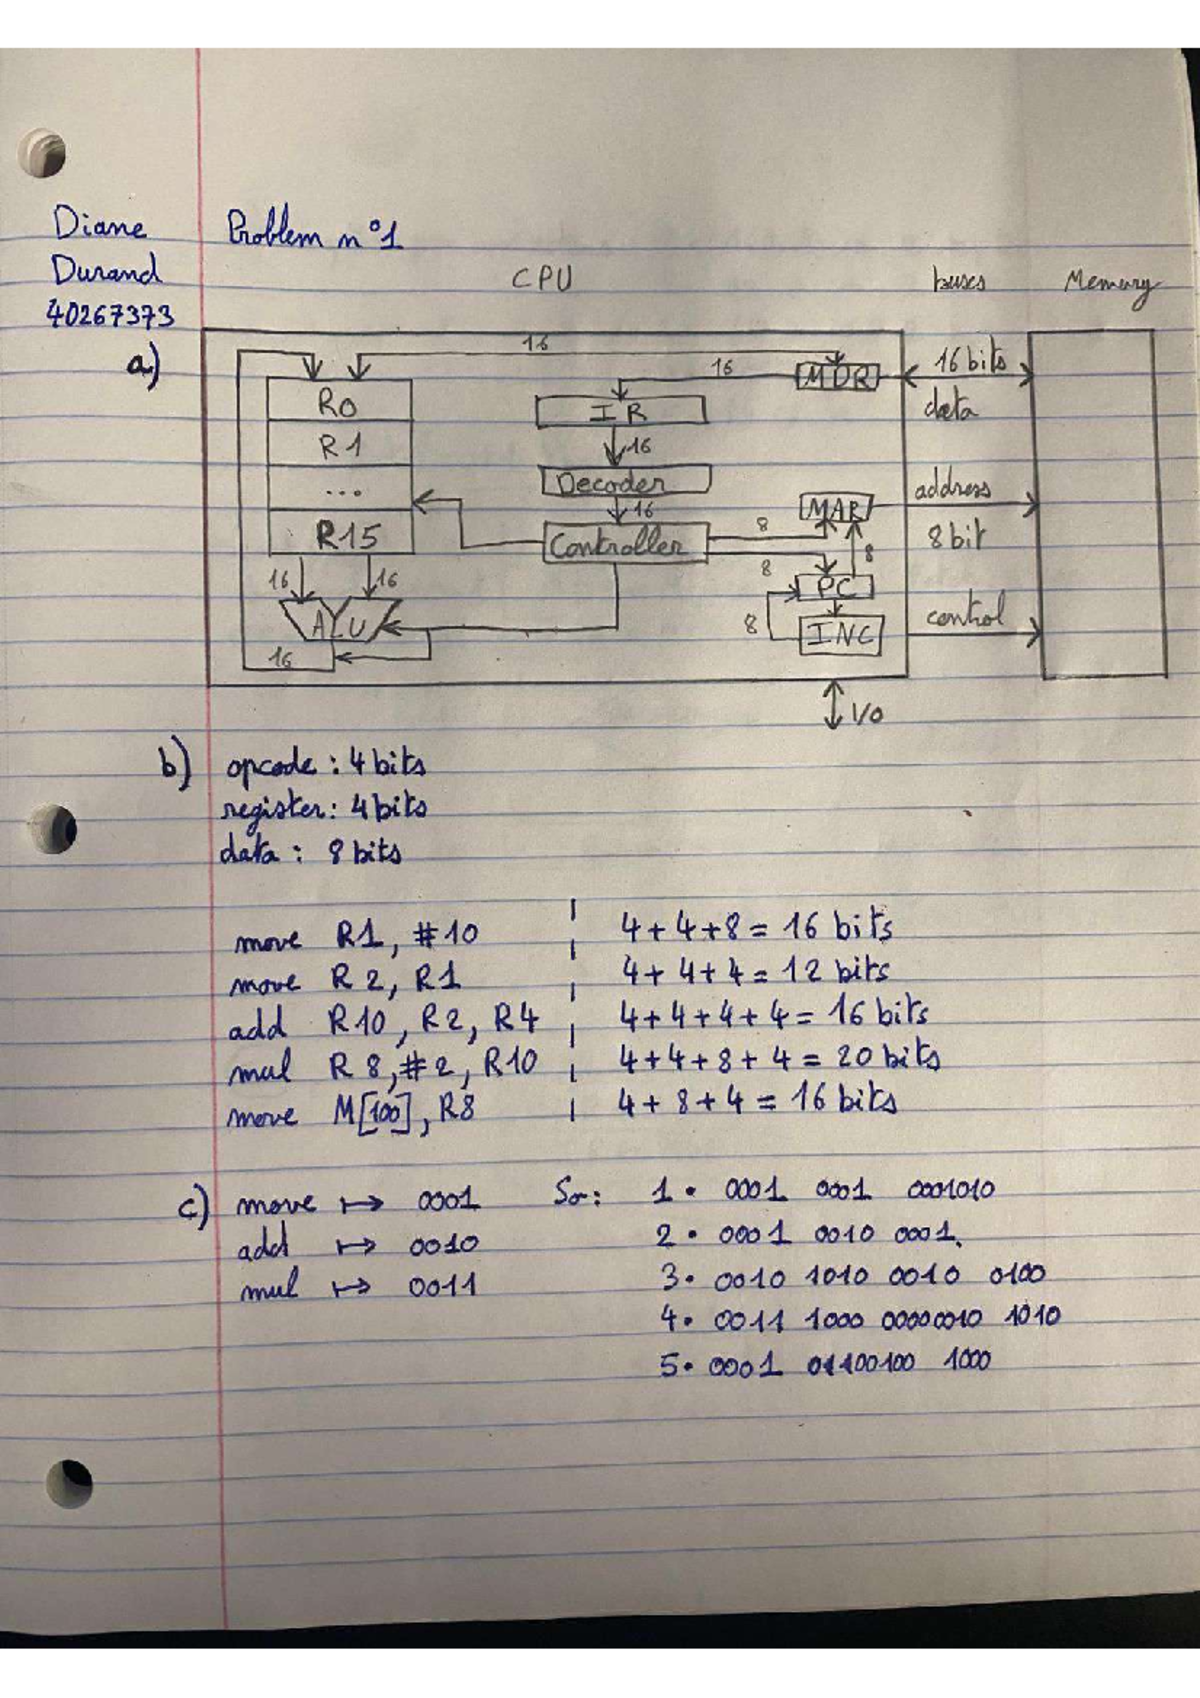 Diane Problem n°1
Durand
40267373
CPU buses Memory
a)
16
16
MDR
16 bits
data
R0
IR
R1
16
...
Decoder
16
MAR
address
R15
Controller
8
8
8 bit
16 16
8
PC
ALU
8
INC
control
16
I/O
b) opcode : 4 bits
register : 4 bits
data : 8 bits
move R1, #10 | 4+4+8 = 16 bits
move R2, R1 | 4+4+4 = 12 bits
add R10, R2, R4 | 4+4+4+4 = 16 bits
mul R8, #2, R10 | 4+4+8+4 = 20 bits
move M[100], R8 | 4+8+4 = 16 bits
c) move ↦ 0001 So : 1. 0001 0001 0001010
add ↦ 0010 2. 0001 0010 0001
mul ↦ 0011 3. 0010 1010 0010 0100
4. 0011 1000 00000010 1010
5. 0001 01100100 1000